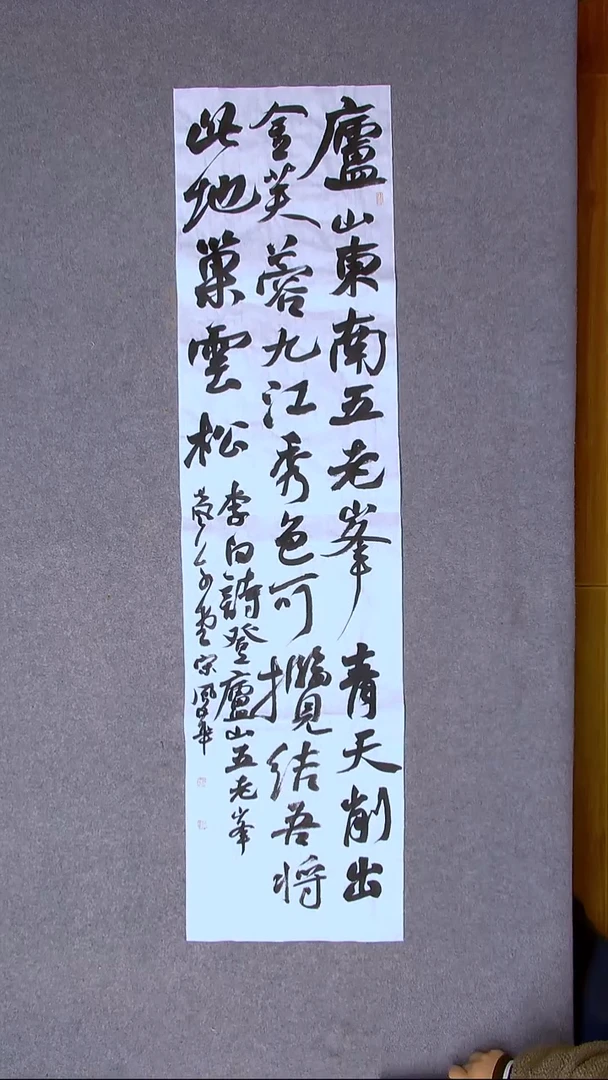 廬山東南五老峯青天削出
金芙蓉九江秀色可攬結吾将
此地巢雲松
李白詩登廬山五老峯
宗風華